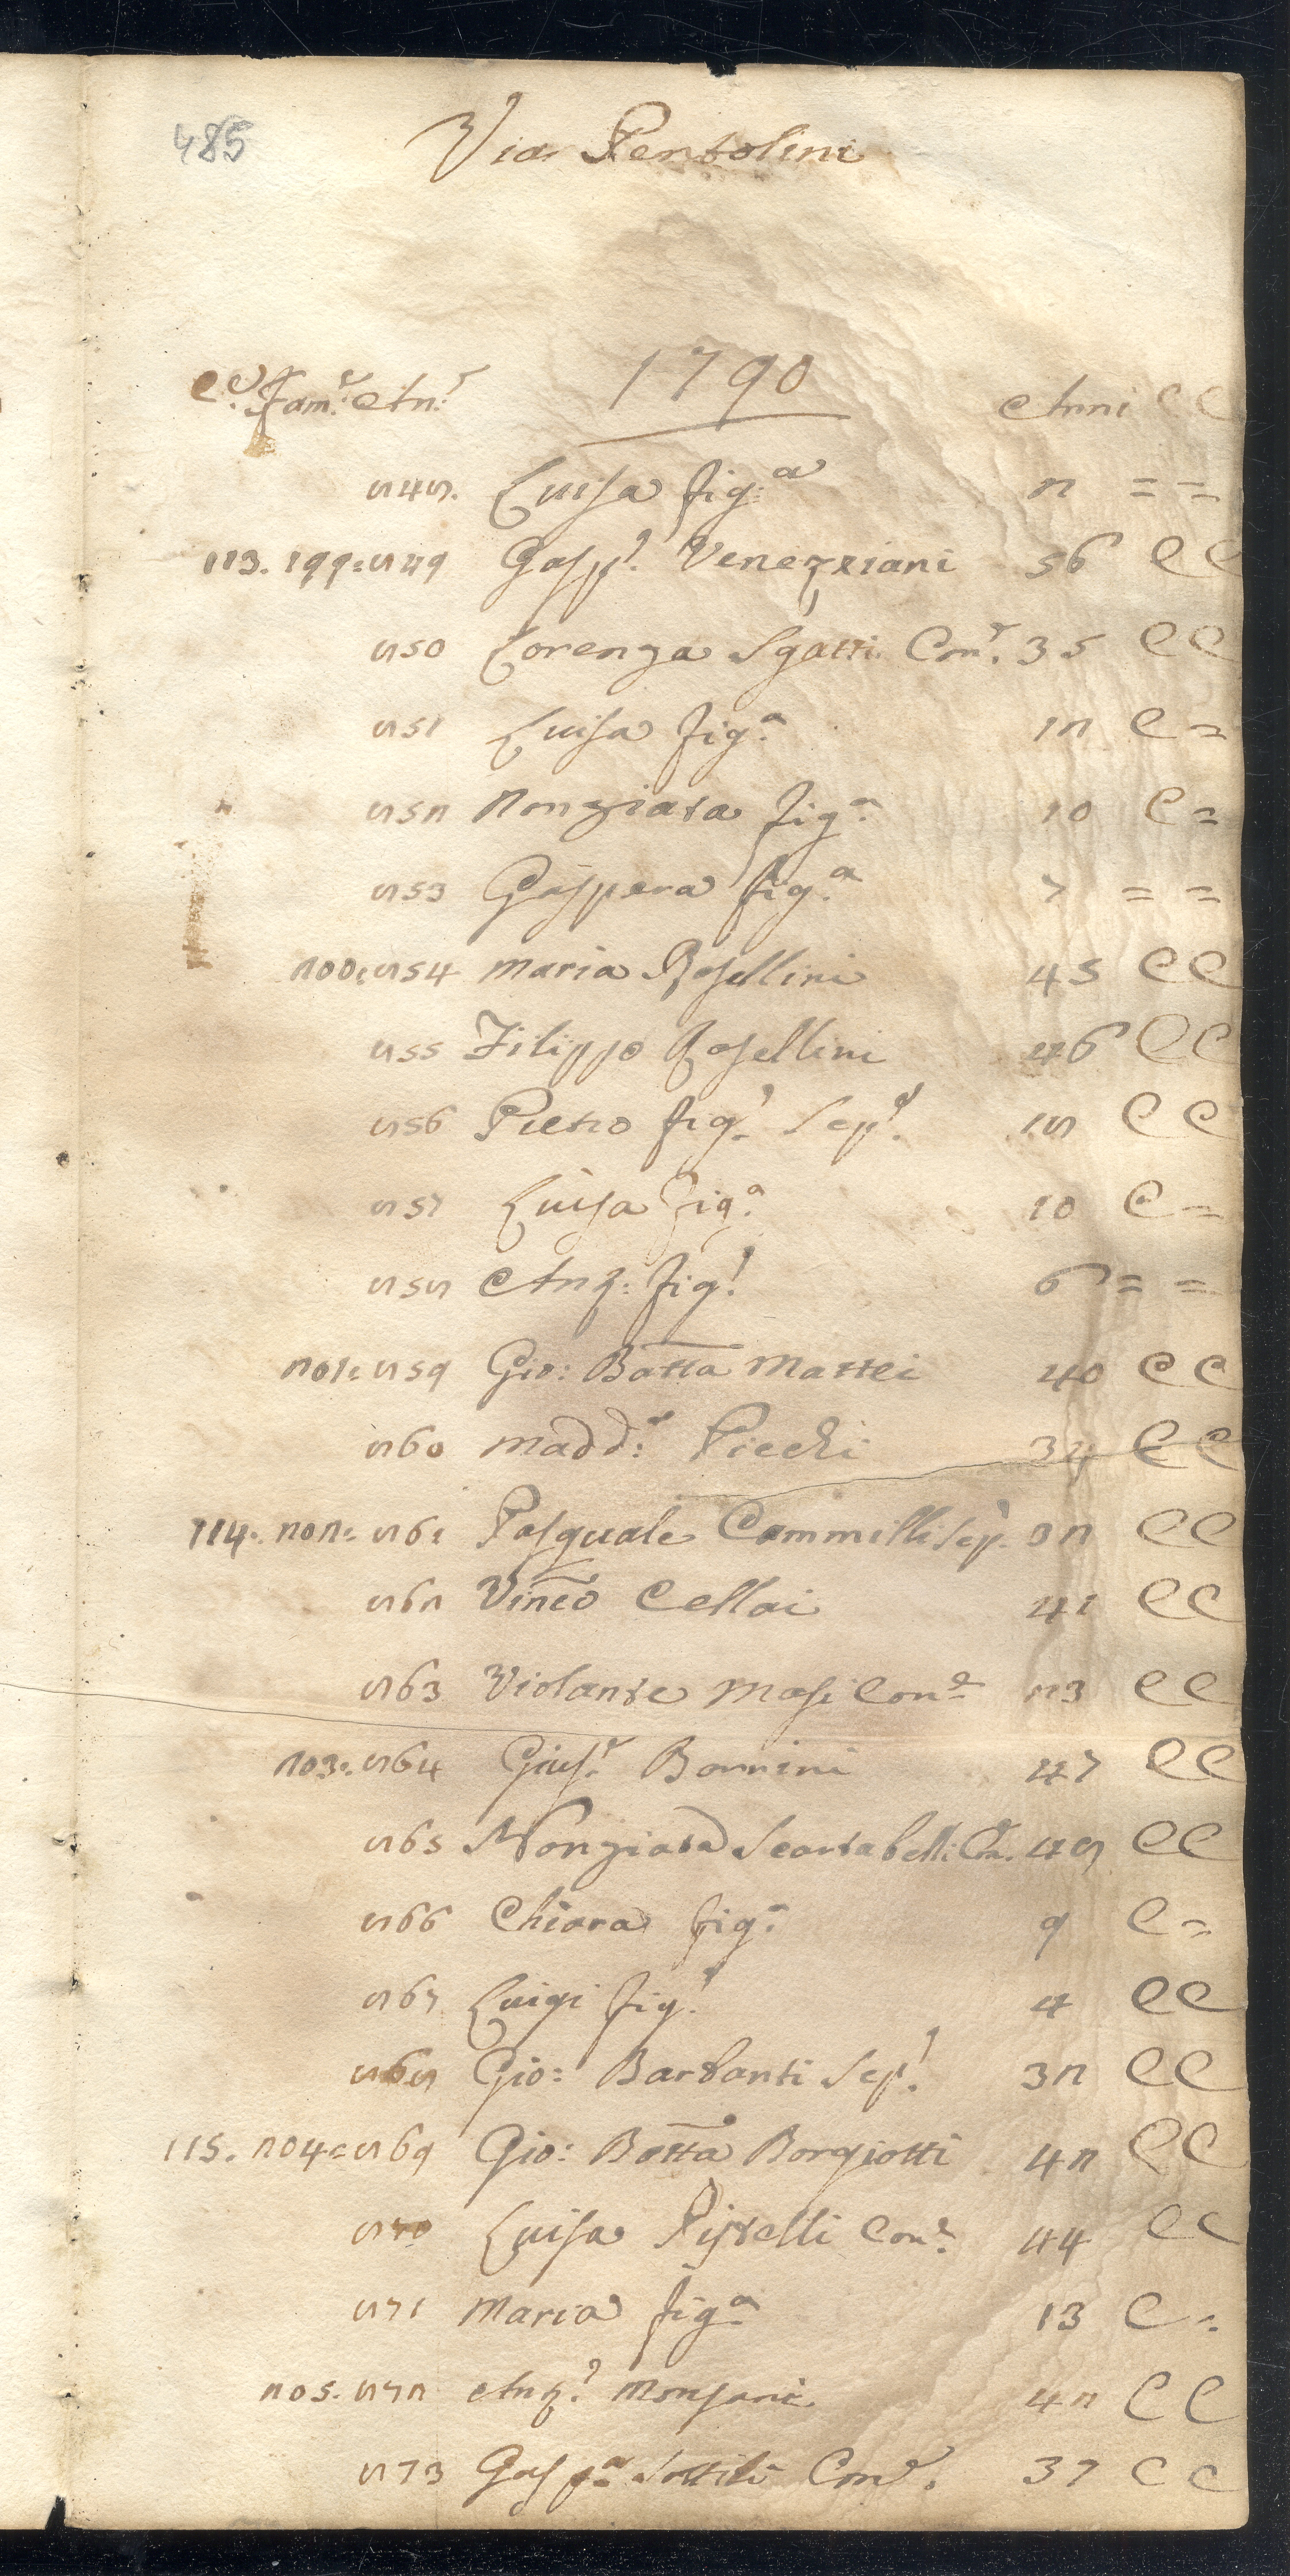 485
Via Pentolini
C.e Fam.e An.e 1790 Anni C C
848. Luisa fig.a 2 = =
113. 199: 849 Gasp.o Venezziani 56 C C
850 Lorenza Sgatti Con.e 35 C C
851 Luisa fig.a 12 C =
852 Nonziata fig.a 10 C =
853 Gaspera fig.a 7 = =
200: 854 Maria Rosellini 45 C C
855 Filippo Rosellini 46 C C
856 Pietro fig.o Sep.e 18 C C
857 Luisa fig.a 10 C =
858 Ang: fig.o 6 = =
201: 859 Gio: Batta Mattei 40 C C
860 Madd:a Picchi 34 C C
114. 202: 861 Pasquale Cammilli Sep. 32 C C
862 Vinco Cellai 41 C C
863 Violante Masi Con.e 23 C C
203: 864 Gius.e Bonnini 47 C C
865 Nonziata Scartabelli Con. 48 C C
866 Chiara fig.a 9 C =
867 Luigi fig.o 4 C C
868 Gio: Barbanti Sep.o 32 C C
115. 204: 869 Gio: Batta Borgiotti 42 C C
870 Luisa Pistelli Con.e 44 C C
871 Maria fig.a 13 C =
205. 872 Ang.o Monsani 42 C C
873 Gasp.a Sottili Con.e 37 C C